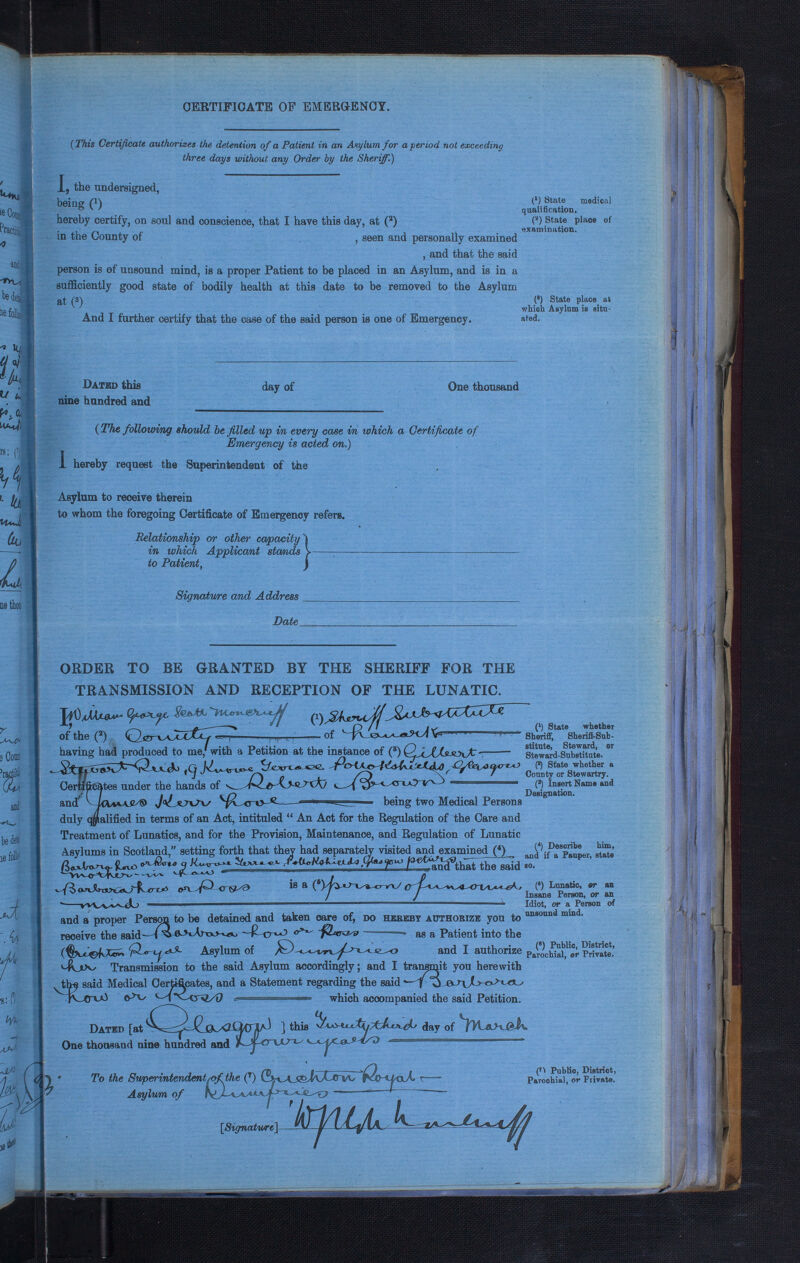 CERTIFICATE OF EMERGENCY.
(This Certificate authorizes the detention of a Patient in an Asylum for a period not exceeding
three days without any Order by the Sheriff.)
I, the undersigned,
being (¹)
hereby certify, on soul and conscience, that I have this day, at (²)
in the County of , seen and personally examined
, and that the said
person is of unsound mind, is a proper Patient to be placed in an Asylum, and is in a
sufficiently good state of bodily health at this date to be removed to the Asylum
at (³)
And I further certify that the case of the said person is one of Emergency.
(¹) State medical
qualification.
(²) State place of
examination.
(³) State place at
which Asylum is situ-
ated.
DATED this day of One thousand
nine hundred and
(The following should be filled up in every case in which a Certificate of
Emergency is acted on.)
I hereby request the Superintendent of the
Asylum to receive therein
to whom the foregoing Certificate of Emergency refers.
Relationship or other capacity
in which Applicant stands
to Patient,
Signature and Address
Date
ORDER TO BE GRANTED BY THE SHERIFF FOR THE
TRANSMISSION AND RECEPTION OF THE LUNATIC.
I, William George Scott Moncrieff (¹), Sheriff Substitute
of the (²) County of Lanark
having had produced to me, with a Petition at the instance of (³) Gilbert
Stewart Reid, 9 Knowe Terrace Pollokshields, Glasgow
Certificates under the hands of Robert Brown
and James Kerr Love being two Medical Persons
duly qualified in terms of an Act, intituled "An Act for the Regulation of the Care and
Treatment of Lunatics, and for the Provision, Maintenance, and Regulation of Lunatic
Asylums in Scotland," setting forth that they had separately visited and examined (⁴)
Barbara Row or Ross 9 Knowe Terrace, Pollokshields, Glasgow
mother-in-law and that the said
Barbara Row or Ross is a (⁵) person of unsound
mind
and a proper Person to be detained and taken care of, DO HEREBY AUTHORIZE you to
receive the said Barbara Row or Ross as a Patient into the
Crichton Royal Asylum of Dumfries and I authorize
her Transmission to the said Asylum accordingly; and I transmit you herewith
the said Medical Certificates, and a Statement regarding the said Barbara
Row or Ross which accompanied the said Petition.
DATED [at Glasgow ] this Twenty third day of March
One thousand nine hundred and four years
To the Superintendent of the (⁷) Crichton Royal
Asylum of Dumfries
[Signature] W G Scott Moncrieff
(¹) State whether
Sheriff, Sheriff-Sub-
stitute, Steward, or
Steward-Substitute.
(²) State whether a
County or Stewartry.
(³) Insert Name and
Designation.
(⁴) Describe him,
and if a Pauper, state
so.
(⁵) Lunatic, or an
Insane Person, or an
Idiot, or a Person of
unsound mind.
(⁶) Public, District,
Parochial, or Private.
(⁷) Public, District,
Parochial, or Private.